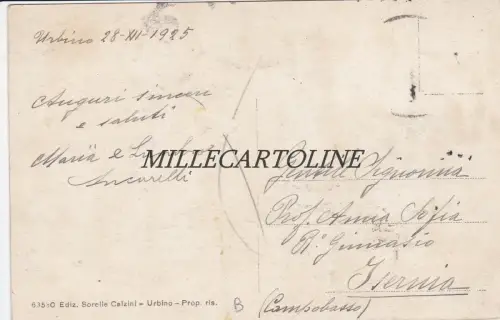 Urbino 28-XII-1925
Auguri sinceri
e saluti
Maria e
Ancarelli
MILLECARTOLINE
Gentile Signorina
Prof. Anna Sofia
R. Ginnasio
Isernia
(Campobasso)
B
63550 Ediz. Sorelle Calzini - Urbino - Prop. ris.